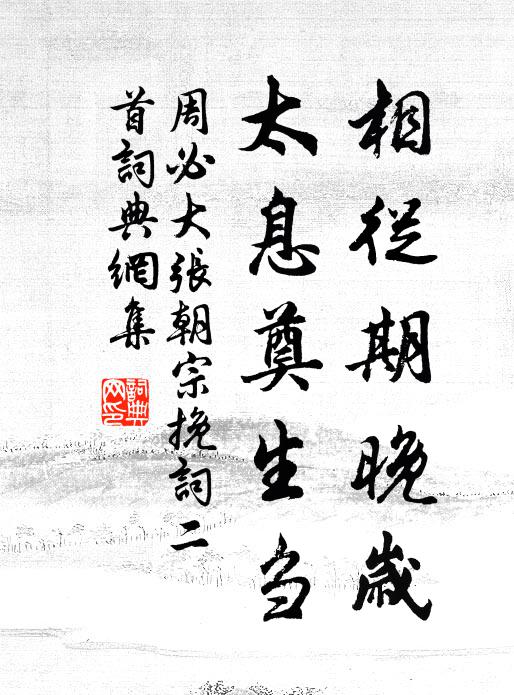 相從期晚歲
太息奠生刍
周必大張朝宗挽詞二
首詞典網集
詞典
网印